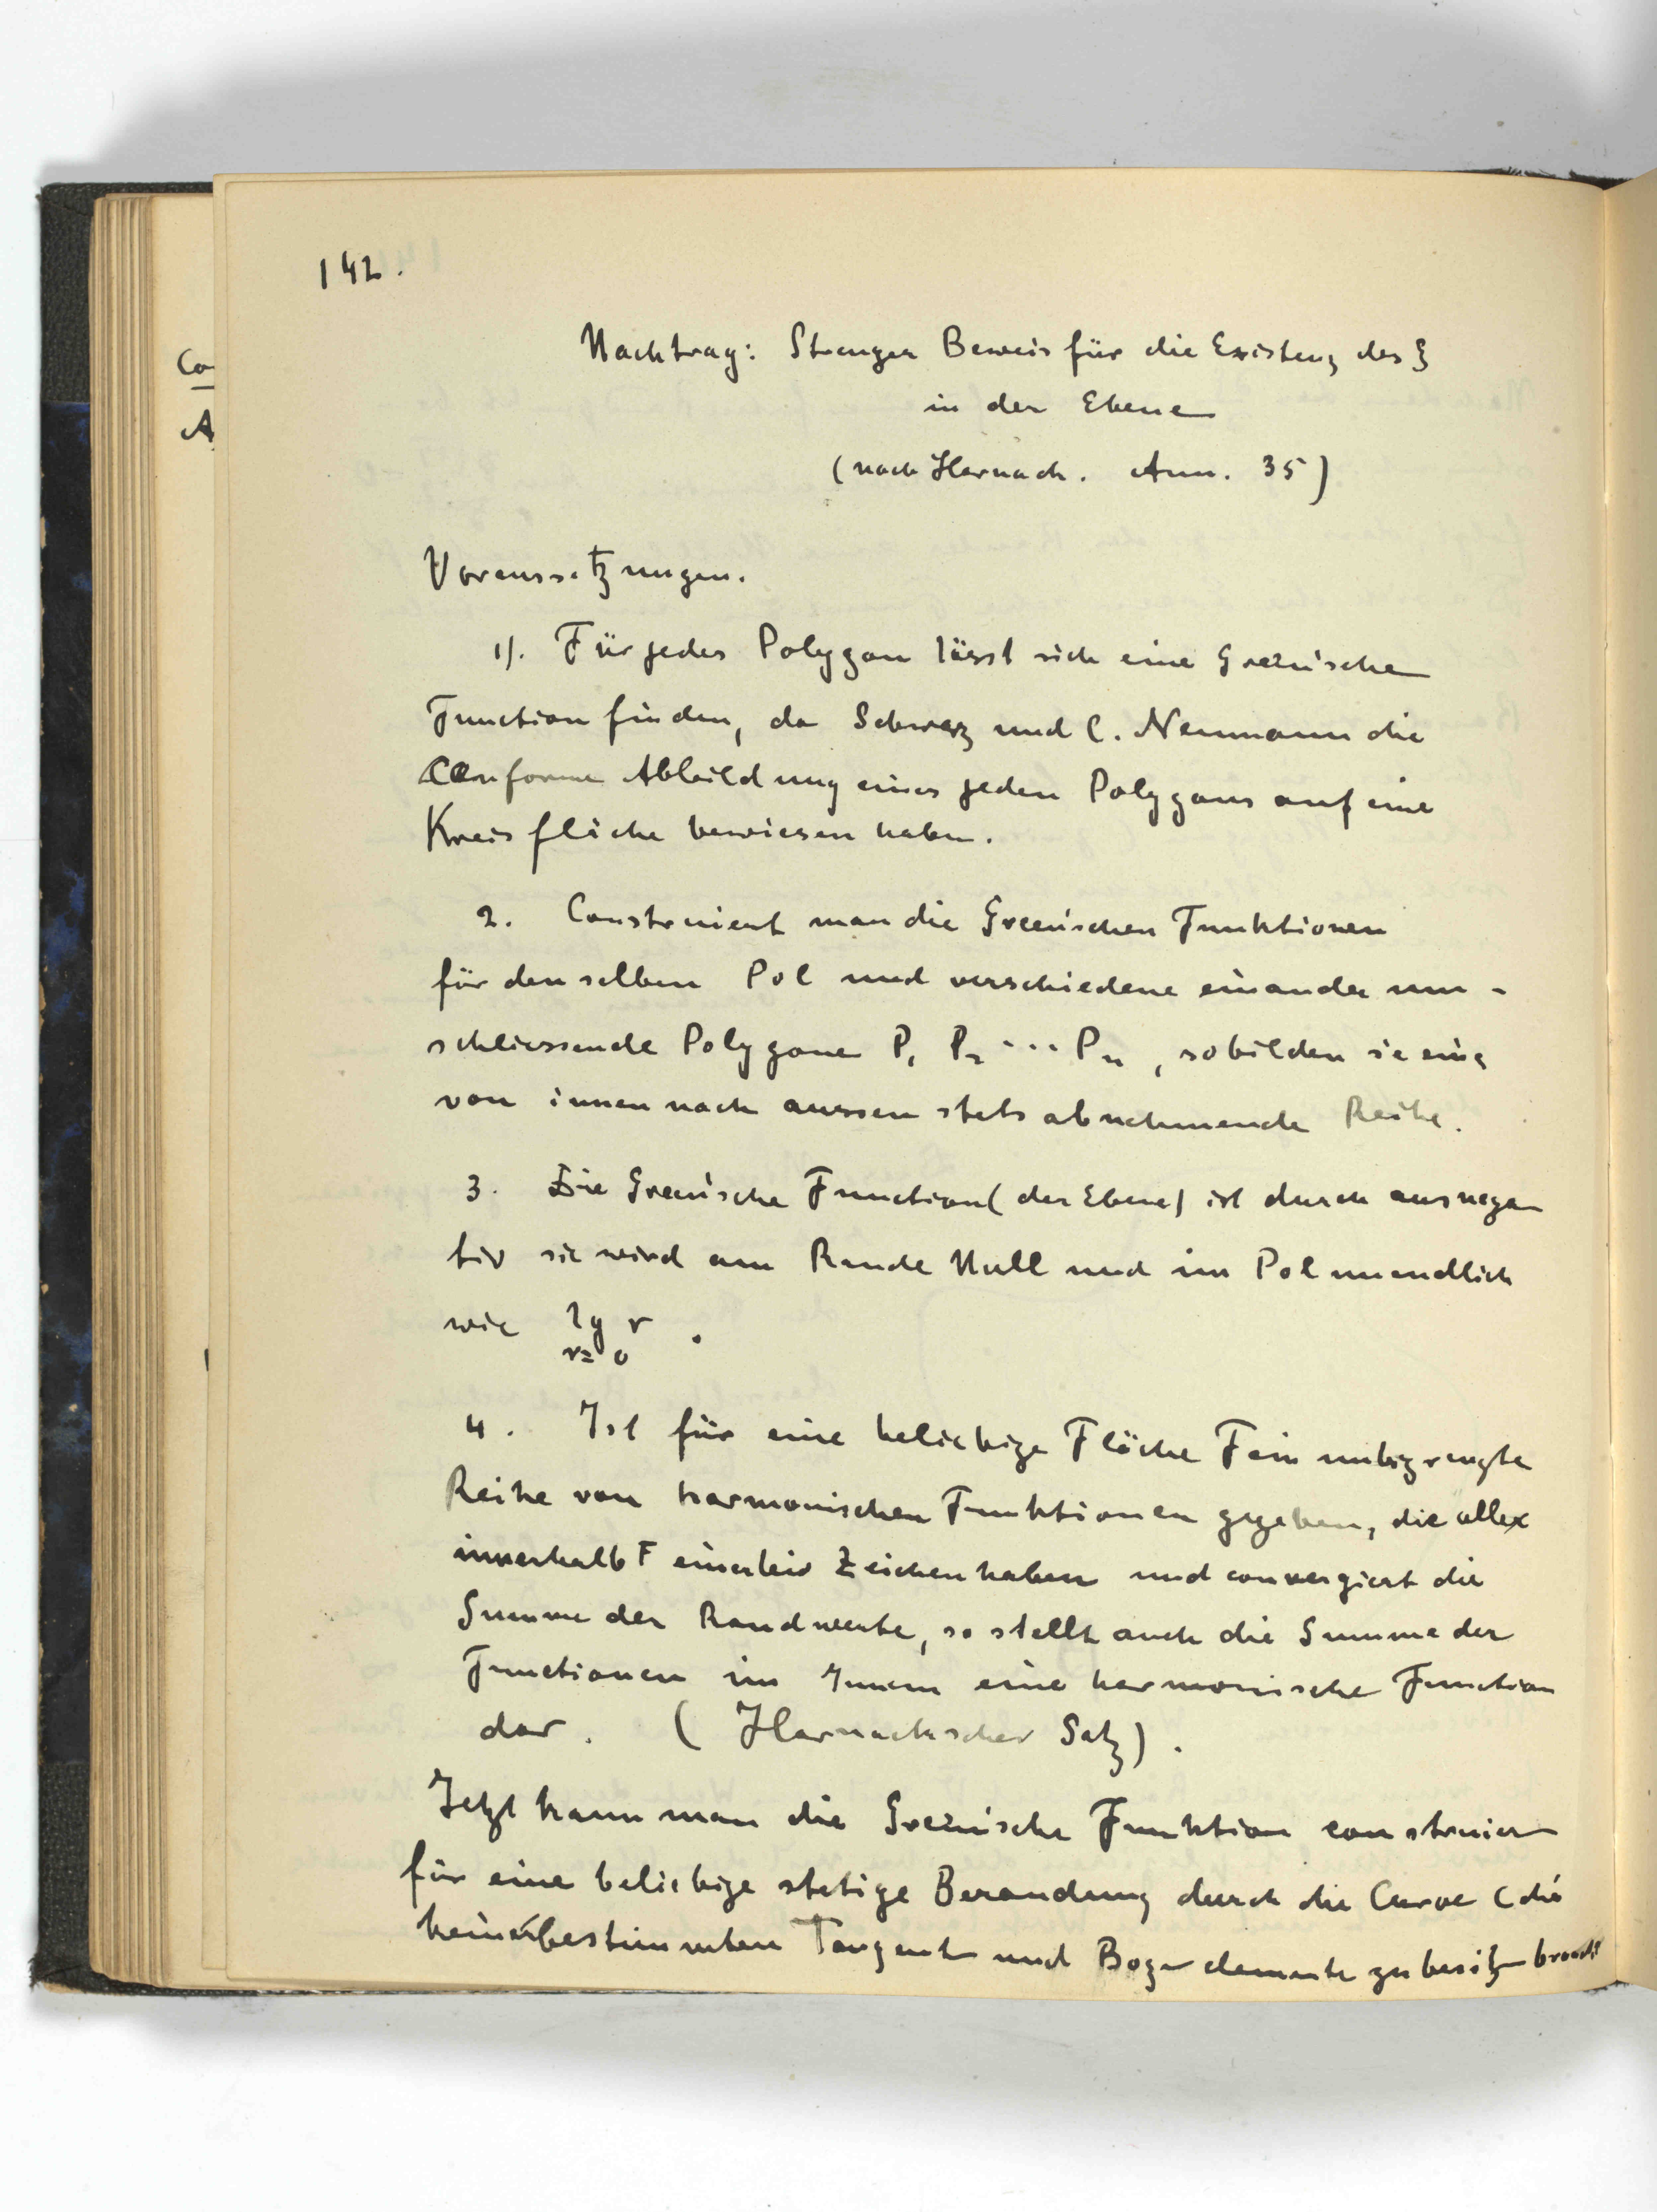 142.
Co
A
Nachtrag: Strenger Beweis für die Existenz des
in der Ebene
(nach Harnack. Ann. 35)
Voraussetzungen.
1). Für jedes Polygon lässt sich eine Greensche
Function finden, da Schwarz und C. Neumann die
Conforme Abbildung eines jeden Polygons auf eine
Kreisfläche bewiesen haben.
2. Construiert man die Greenschen Funktionen
für denselben Pol und verschiedene einander um-
schliessende Polygone P₁ P₂ ··· Pₙ, so bilden sie eine
von innen nach aussen stets abnehmende Reihe.
3. Die Greensche Function (der Ebene) ist durchaus nega
tiv sie wird am Rande Null und im Pol unendlich
wie lg r .
r=0
4. Ist für eine beliebige Fläche F ein unbegrenzte
Reihe von harmonischen Funktionen gegeben, die alle
innerhalb F einerlei Zeichen haben und convergiert die
Summe der Randwerte, so stellt auch die Summe der
Functionen im Innern eine harmonische Function
dar. (Harnackscher Satz).
Jetzt kann man die Greensche Funktion construieren
für eine beliebige stetige Berandung durch die Curve C die
keine bestimmten Tangenten und Bogenelemente zu besitzen braucht